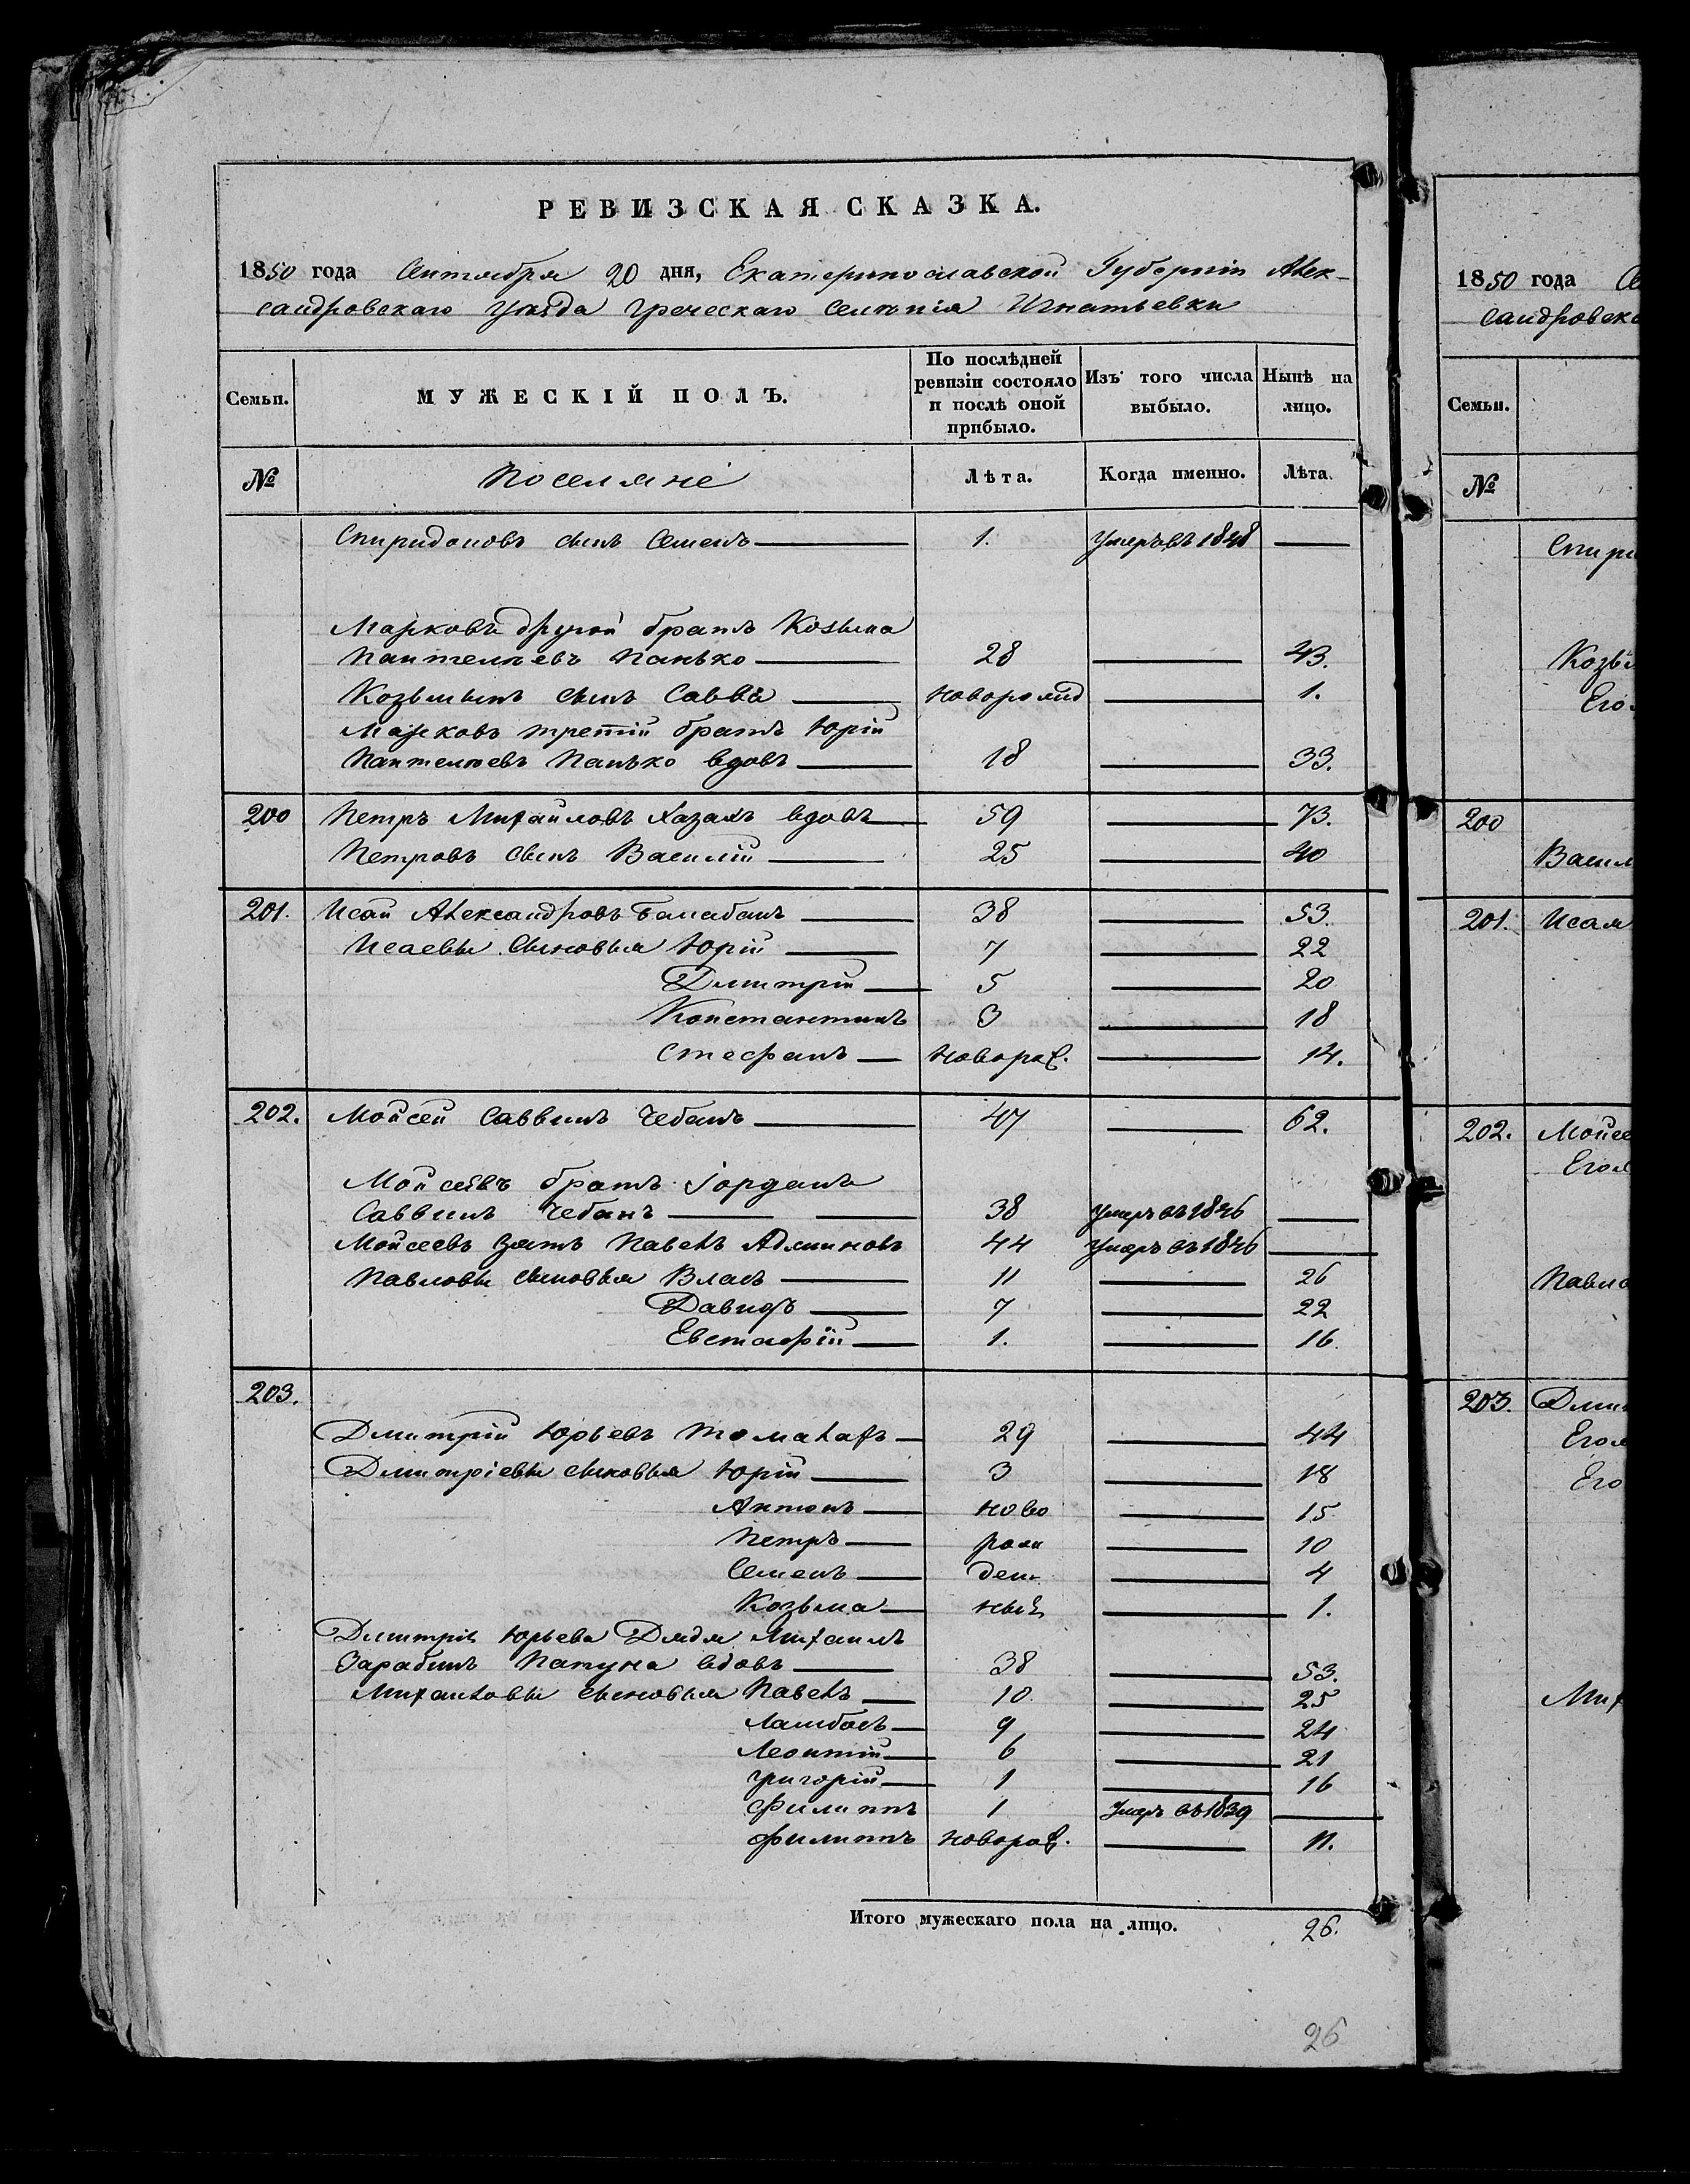 РЕВИЗСКАЯ СКАЗКА.
1850 года Сентября 20 дня, Екатеринославской Губерніи Алек-
сандровскаго уѣзда греческаго селенія Игнатьевки
Семьи. МУЖЕСКІЙ ПОЛЪ. По послѣдней ревизіи состояло и послѣ оной прибыло. Изъ того числа выбыло. Нынѣ на лицо.
№ Поселяне Лѣта. Когда именно. Лѣта.
Спиридоновъ сынъ Семенъ 1. умеръ въ 1848
Марковъ другой братъ Козьма
Пантелѣевъ Панько 28 43.
Козьминъ сынъ Савва новорожд 1.
Марковъ третій братъ Юрій
Пантелѣевъ Панько вдовъ 18 33.
200 Петръ Михайловъ Хазахъ вдовъ 59 73.
Петровъ сынъ Василій 25 40
201. Исай Александровъ Балабанъ 38 53.
Исаевы сыновья Юрій 7 22
Дмитрій 5 20
Константинъ 3 18
Стефанъ новорож. 14.
202. Мойсей Саввинъ Чебанъ 47 62.
Мойсеевъ братъ Іорданъ
Саввинъ Чебанъ 38 умеръ въ 1846
Мойсеевъ зять Павелъ Адаминовъ 44 умеръ въ 1846
Павловы сыновья Власъ 11 26
Давидъ 7 22
Евстафій 1. 16.
203.
Дмитрій Юрьевъ 29 44
Дмитріевы сыновья Юрій 3 18
Антонъ ново 15
Петръ рож 10
Семенъ ден 4
Козьма ные 1.
Дмитрія Юрьева Дядя Михаилъ
Зарабинъ Папуна вдовъ 38 53.
Михайловы сыновья Павелъ 10 25
Ламбосъ 9 24
Леонтій 6 21
Григорій 1 16
Филиппъ 1 умеръ въ 1839
Филиппъ новорож. 11.
Итого мужескаго пола на лицо. 26.
26
1850 года Се
сандровска
Семьи.
№
Спири
Козьм
Его
200
Васил
201. Исая
202. Мойсе
Его
Павло
203. Дми
Его
Его
Мих